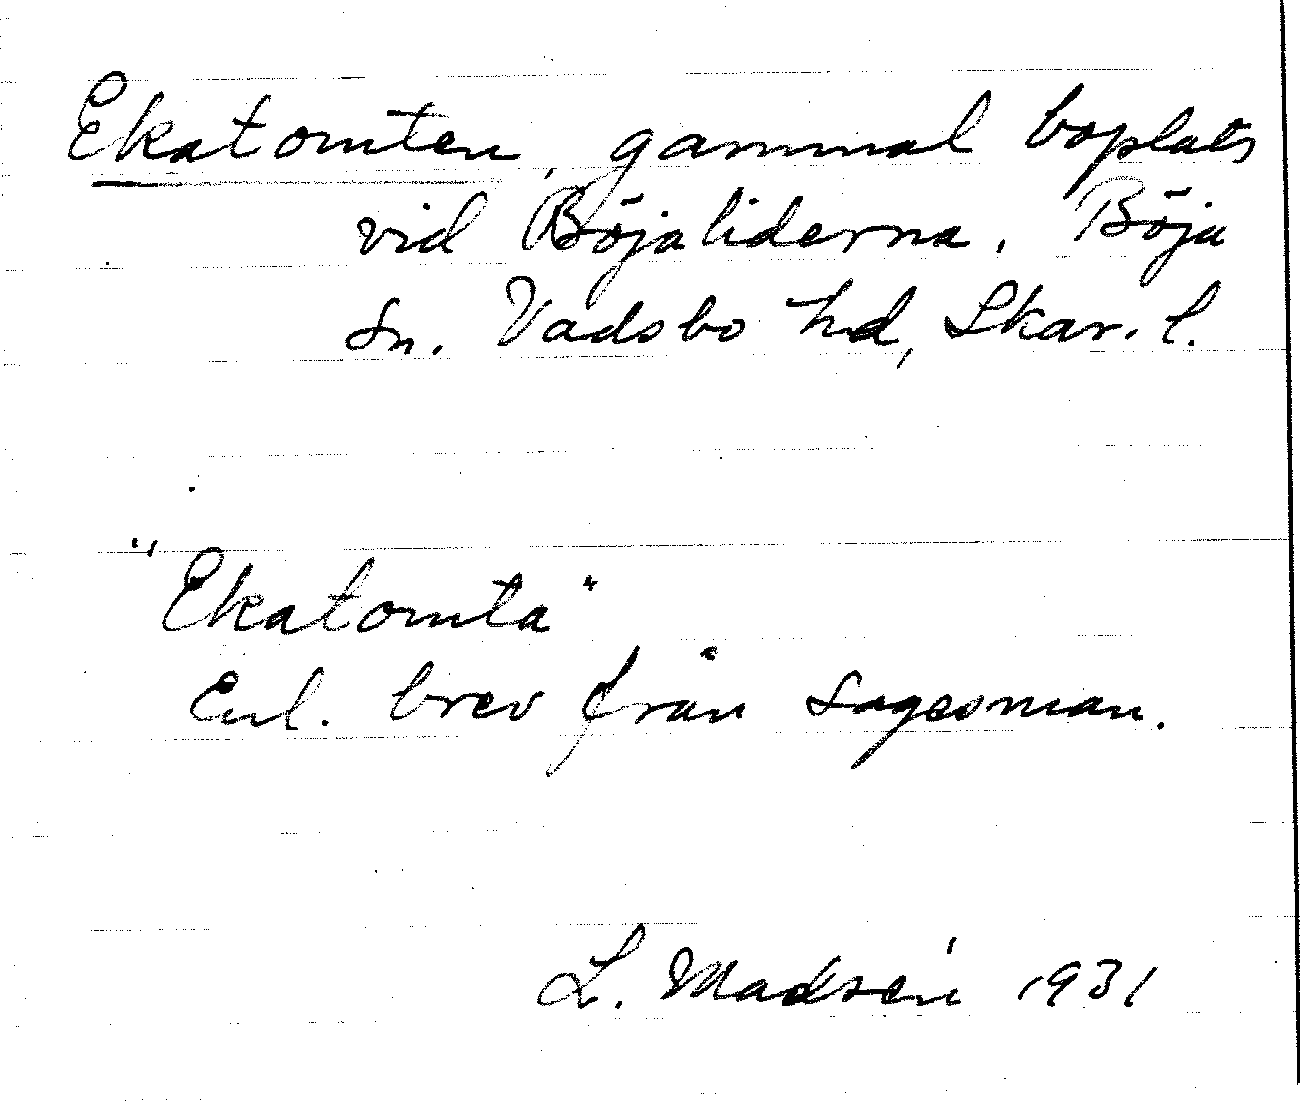 Ekatomten, gammal boplats
vid Böjaliderna. Böja
sn. Vadsbo hd, Skar. l.
"Ekatomta"
Enl. brev från sagesman.
L. Madsén 1931